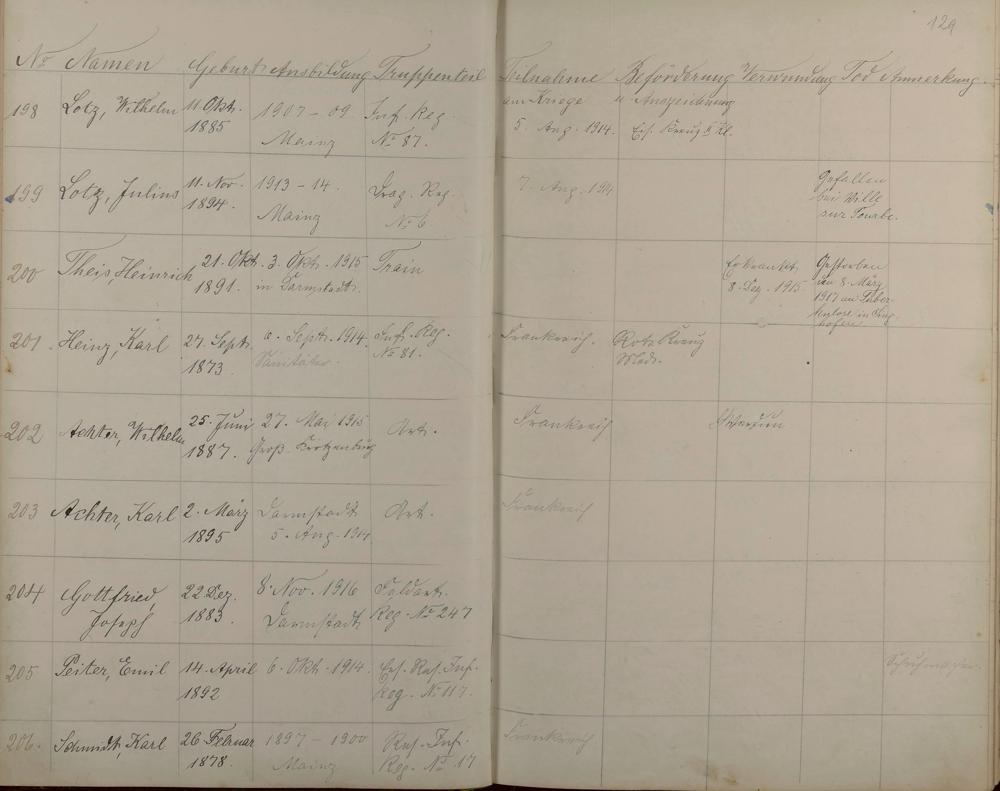 129
No Namen Geburt Ausbildung Truppenteil Teilnahme Beförderung Verwundung Tod Anmerkung.
am Kriege u. Auszeichnung
198 Lotz, Wilhelm 11. Okt. 1907 – 09. Inf. Reg.
1885 Mainz No 87. 5. Aug. 1914. Eis. Kreuz II Kl.
199 Lotz, Julius 11. Nov. 1913 – 14. Drag. Reg. 7. Aug. 1914 Gefallen
1894. Mainz No 6 bei Ville
sur Tourbe.
200 Theis, Heinrich 21. Okt. 3. Okt. 1915 Train Erkrankt Gestorben
1891. in Darmstadt. 8. Dez. 1915 am 8. März
1917 an Tuber-
kulose in
201 Heinz, Karl 27. Sept. Sept. 1914. Inf. Reg. Frankreich. Rote Kreuz
1873 Sanitäter. No 81. Med.
202 Achter, Wilhelm 25. Juni 27. Mai 1915 Art. Frankreich
1887. Groß-Krotzenburg
203 Achter, Karl 2. März Darmstadt Art. Frankreich
1895 5. Aug. 1914
204 Gottfried, 22 Dez. 8. Nov. 1916 Feldart.
Joseph 1883. Darmstadt Reg. No 247
205 Peiter, Emil 14. April 6. Okt. 1914. Ers. Res. Inf.
1892 Reg. No 117.
206. Schmidt, Karl 26 Februar 1897 – 1900 Res. Inf. Frankreich
1878. Mainz Reg. No 17